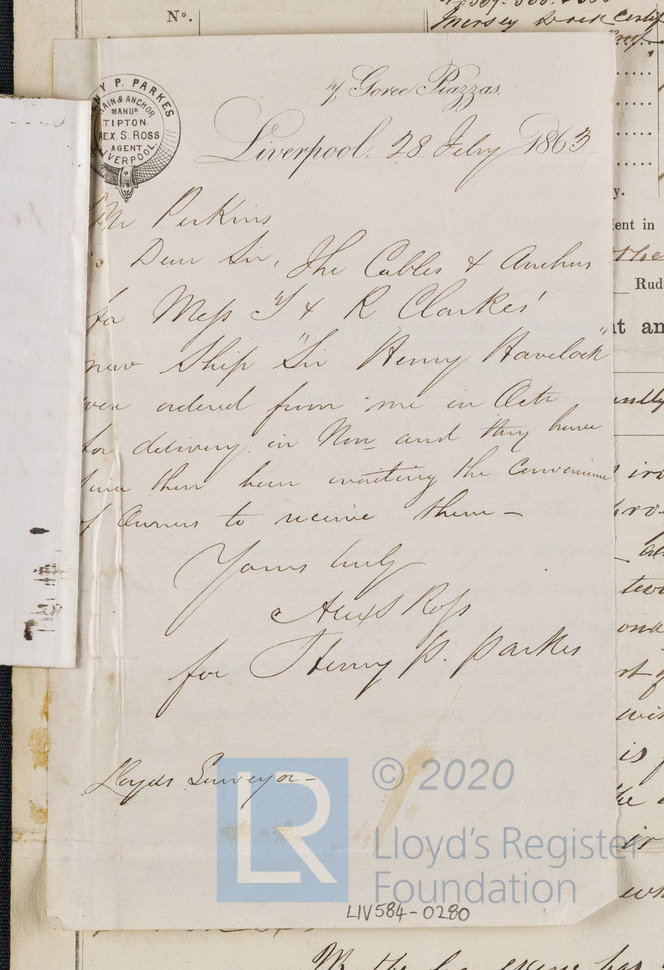 No.
Mersey Dock Certif
HENRY P. PARKES
CHAIN & ANCHOR
MANUR
TIPTON.
ALEX. S. ROSS
AGENT
LIVERPOOL.
7 Goree Piazzas.
Liverpool, 28 Feby 1863
Mr Perkins
Dear Sir, The Cables & Anchors
for Mess T & R Clarkes'
new Ship "Sir Henry Havelock"
were ordered from me in Octr
for delivery in Nov and they have
since then been awaiting the convenience
of Owners to receive them -
Yours truly
Alex S Ross
for Henry P. Parkes
Lloyds Surveyor -
© 2020
LR
Lloyd's Register
Foundation
LIV584-0280
ent in
the
Rud
t an